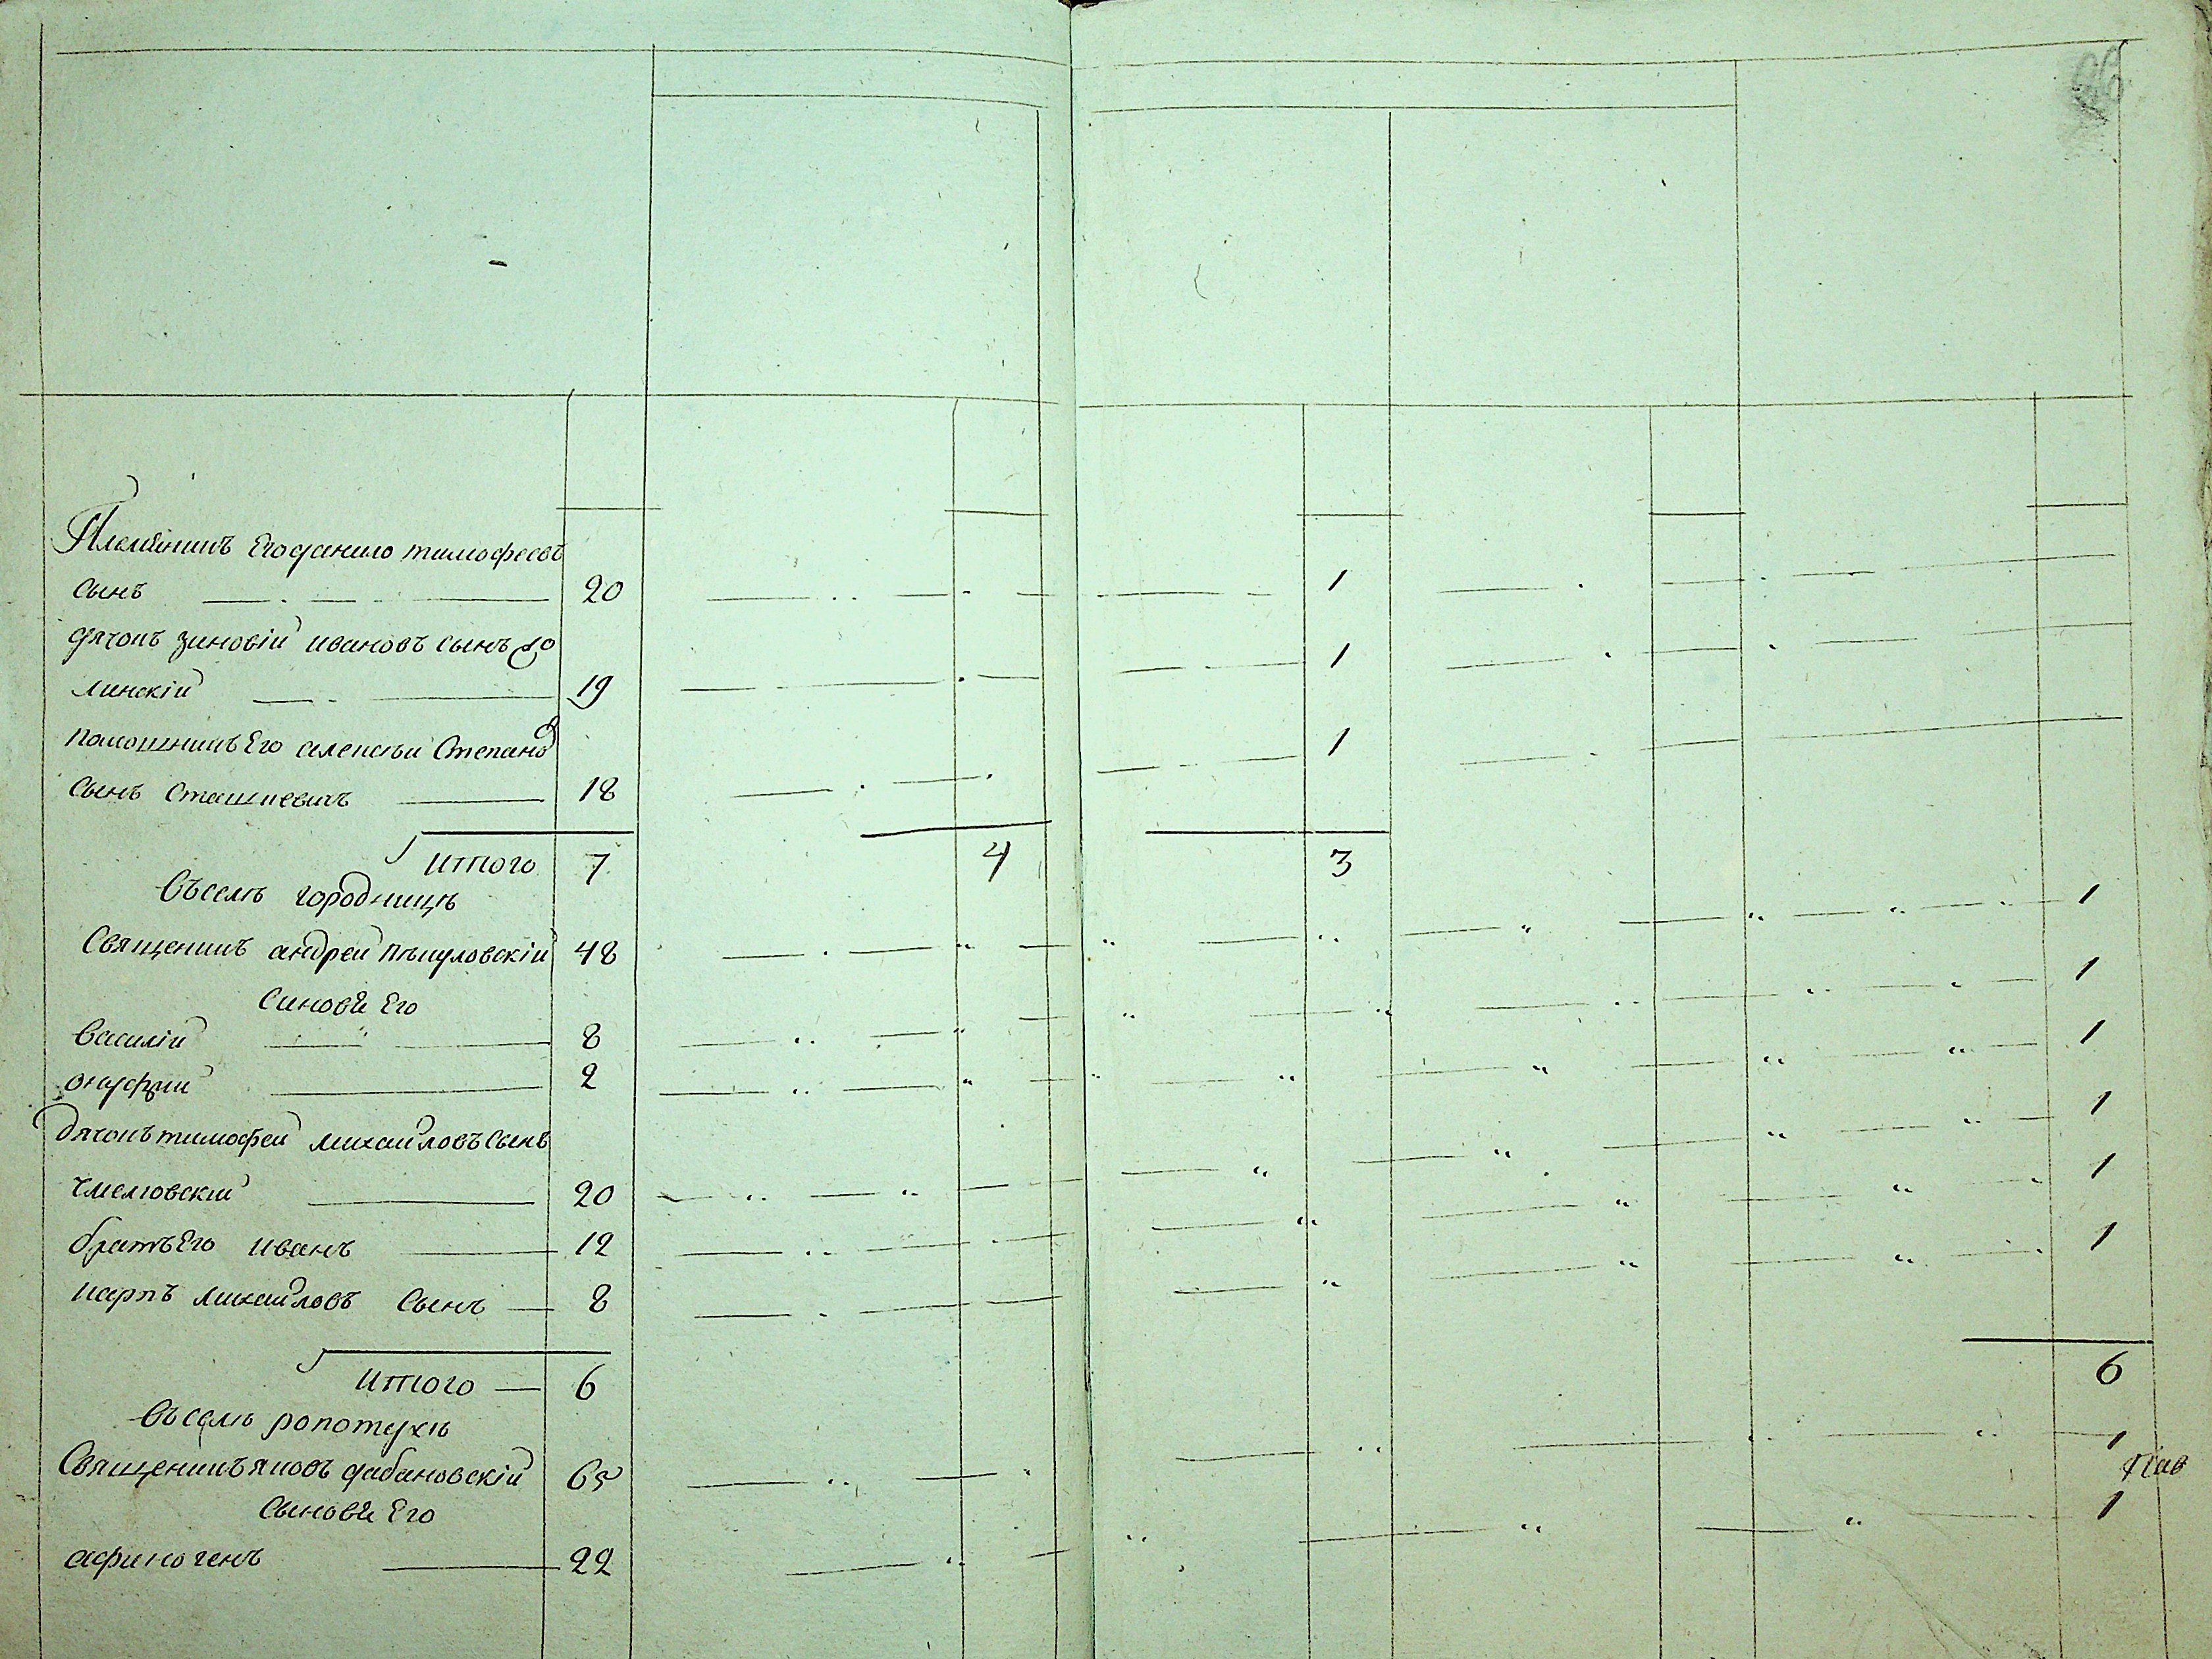 66
Племянникъ Его данило тимофеевъ
сынъ 20 1
дячокъ зиновiй ивановъ сынъ до
линскiй 19 1
помошникъ Его алексѣй Степановъ
сынъ сташкевичъ 18 1
Итого 7 4 3
Въ селѣ городницѣ
Священникъ андрей Пѣкуловскiй 48 1
Синовя Его
Василiй 8 1
онуфрий 2 1
дячокъ тимофей михайловъ сынъ
чмелювскiй 20 1
братъ Его Иванъ 12 1
карпъ михайловъ сынъ 8 1
Итого 6 6
Въ селѣ ропотухѣ
Священникъ яковъ дабановскiй 65 1
Сыновя Его
афиногенъ 22 1